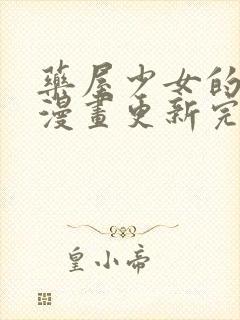 藥屋少女的
漫畫更新完
皇小帝